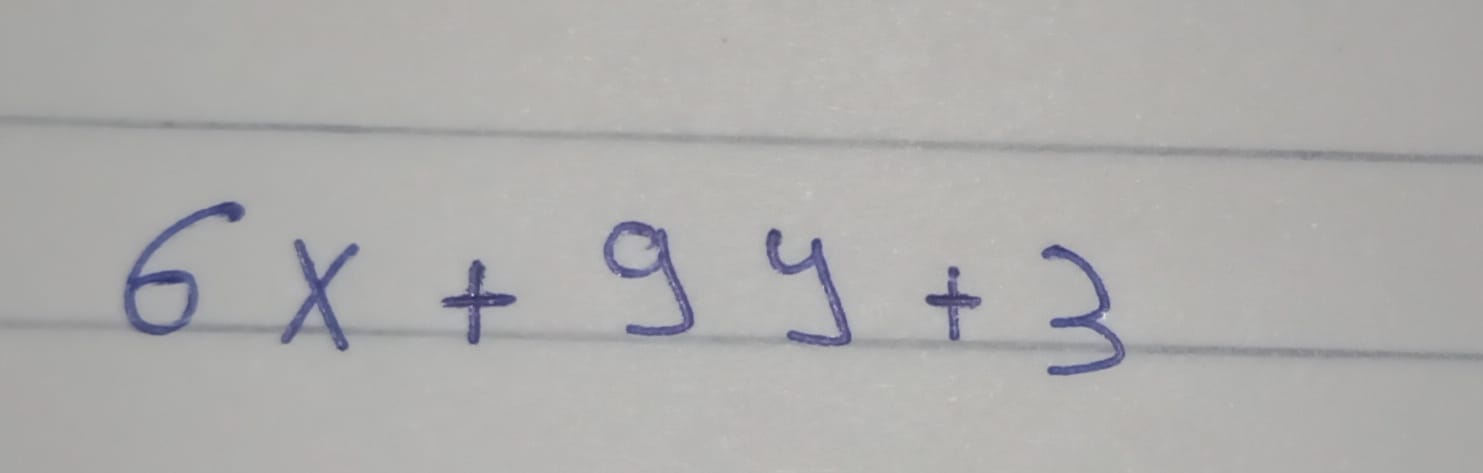 6x + 9y + 3